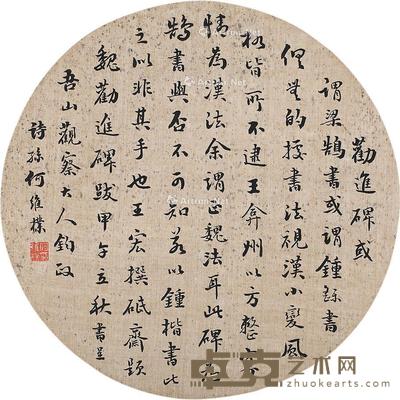 勸進碑或
謂梁鵠書或謂鍾繇書
但無的授書法視漢小變風
格皆所不逮王弇州以方整寡
情為漢法余謂正魏法耳此碑為
鵠書與否不可知若以鍾楷書此
之以非其手也王宏撰砥齋題
魏勸進碑跋甲午立秋書呈
吾山觀察大人鈞政
詩孫何維樸
卓克艺术网
www.zhuokearts.com